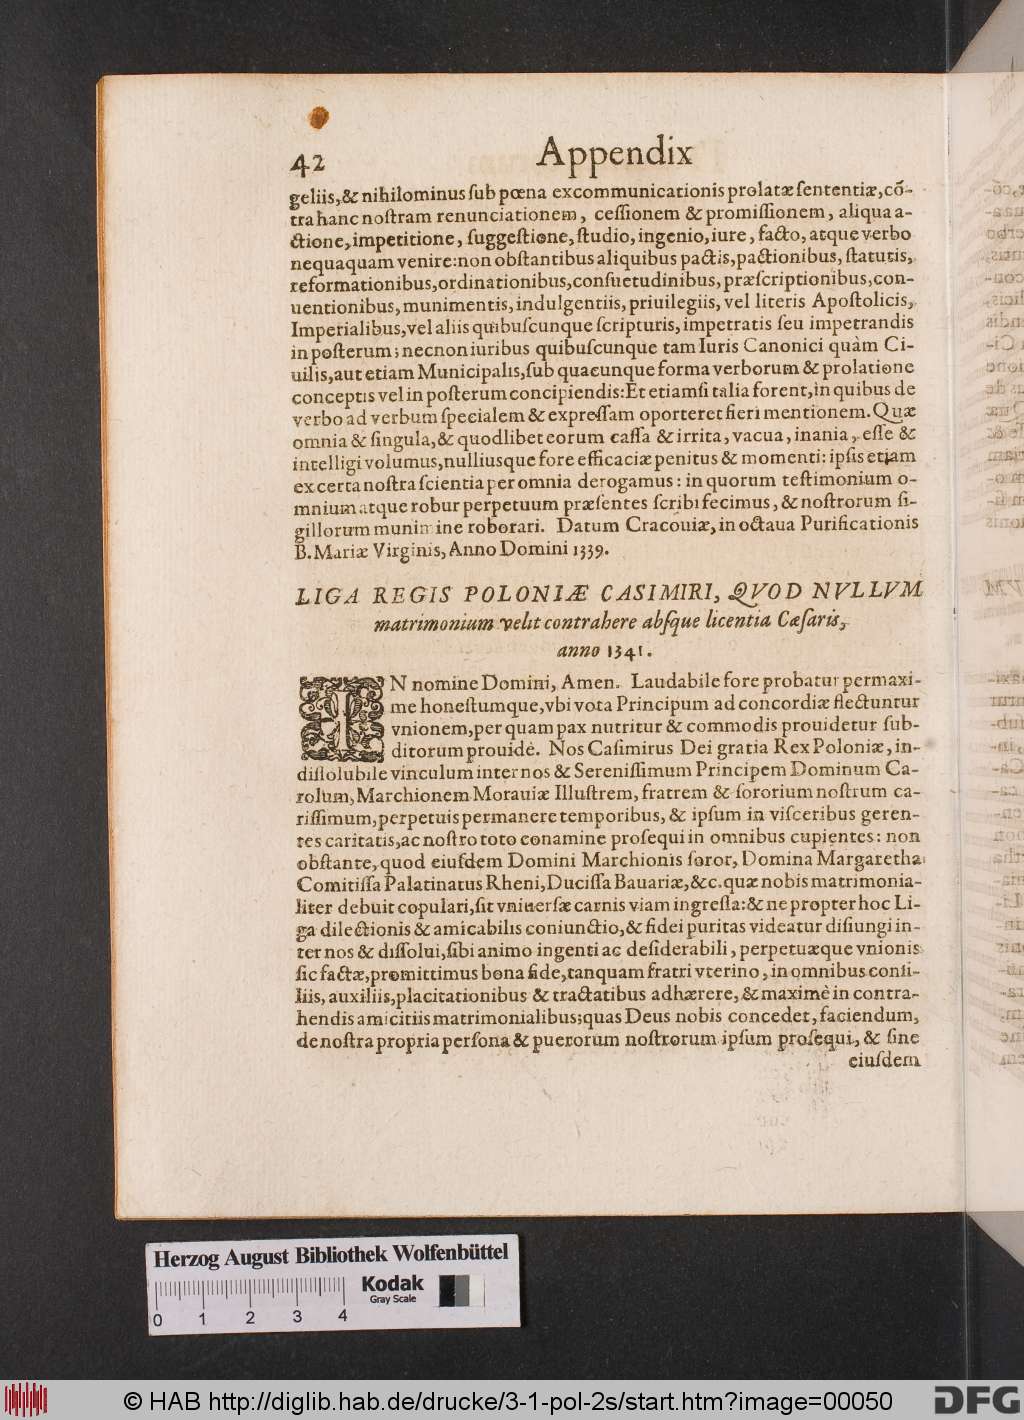 42 Appendix
geliis,& nihilominus sub pœna excommunicationis prolatæ sententiæ,cõ-
tra hanc nostram renunciationem, cessionem & promissionem, aliqua a-
ctione,impetitione, suggestione, studio, ingenio, iure, facto, atque verbo
nequaquam venire:non obstantibus aliquibus pactis,pactionibus, statutis,
reformationibus,ordinationibus,consuetudinibus, præscriptionibus,con-
uentionibus, munimentis, indulgentiis, priuilegiis, vel literis Apostolicis,
Imperialibus,vel aliis quibuscunque scripturis, impetratis seu impetrandis
in posterum; necnon iuribus quibuscunque tam Iuris Canonici quàm Ci-
uilis,aut etiam Municipalis,sub quacunque forma verborum & prolatione
conceptis vel in posterum concipiendis:Et etiamsi talia forent,in quibus de
verbo ad verbum specialem & expressam oporteret fieri mentionem. Quæ
omnia & singula,& quodlibet eorum cassa & irrita, vacua, inania, esse &
intelligi volumus,nulliusque fore efficaciæ penitus & momenti: ipsis etiam
ex certa nostra scientia per omnia derogamus: in quorum testimonium o-
mnium atque robur perpetuum præsentes scribi fecimus, & nostrorum si-
gillorum munimine roborari. Datum Cracouiæ, in octaua Purificationis
B. Mariæ Virginis, Anno Domini 1339.
LIGA REGIS POLONIÆ CASIMIRI, QVOD NVLLVM
matrimonium velit contrahere absque licentia Cæsaris,
anno 1341.
IN nomine Domini, Amen. Laudabile fore probatur permaxi-
me honestumque,vbi vota Principum ad concordiæ flectuntur
vnionem,per quam pax nutritur & commodis prouidetur sub-
ditorum prouidè. Nos Casimirus Dei gratia Rex Poloniæ, in-
dissolubile vinculum inter nos & Serenissimum Principem Dominum Ca-
rolum, Marchionem Morauiæ Illustrem, fratrem & sororium nostrum ca-
rissimum,perpetuis permanere temporibus, & ipsum in visceribus geren-
tes caritatis,ac nostro toto conamine prosequi in omnibus cupientes: non
obstante, quod eiusdem Domini Marchionis soror, Domina Margaretha
Comitissa Palatinatus Rheni, Ducissa Bauariæ,&c.quæ nobis matrimonia-
liter debuit copulari, sit vniuersæ carnis viam ingressa:& ne propter hoc Li-
ga dilectionis & amicabilis coniunctio,& fidei puritas videatur disiungi in-
ter nos & dissolui,sibi animo ingenti ac desiderabili, perpetuæque vnionis
sic factæ,promittimus bona fide,tanquam fratri vterino, in omnibus consi-
liis, auxiliis,placitationibus & tractatibus adhærere, & maximè in contra-
hendis amicitiis matrimonialibus;quas Deus nobis concedet, faciendum,
de nostra propria persona & puerorum nostrorum ipsum prosequi, & sine
eiusdem
Herzog August Bibliothek Wolfenbüttel
Kodak
Gray Scale
0 1 2 3 4
© HAB http://diglib.hab.de/drucke/3-1-pol-2s/start.htm?image=00050
DFG